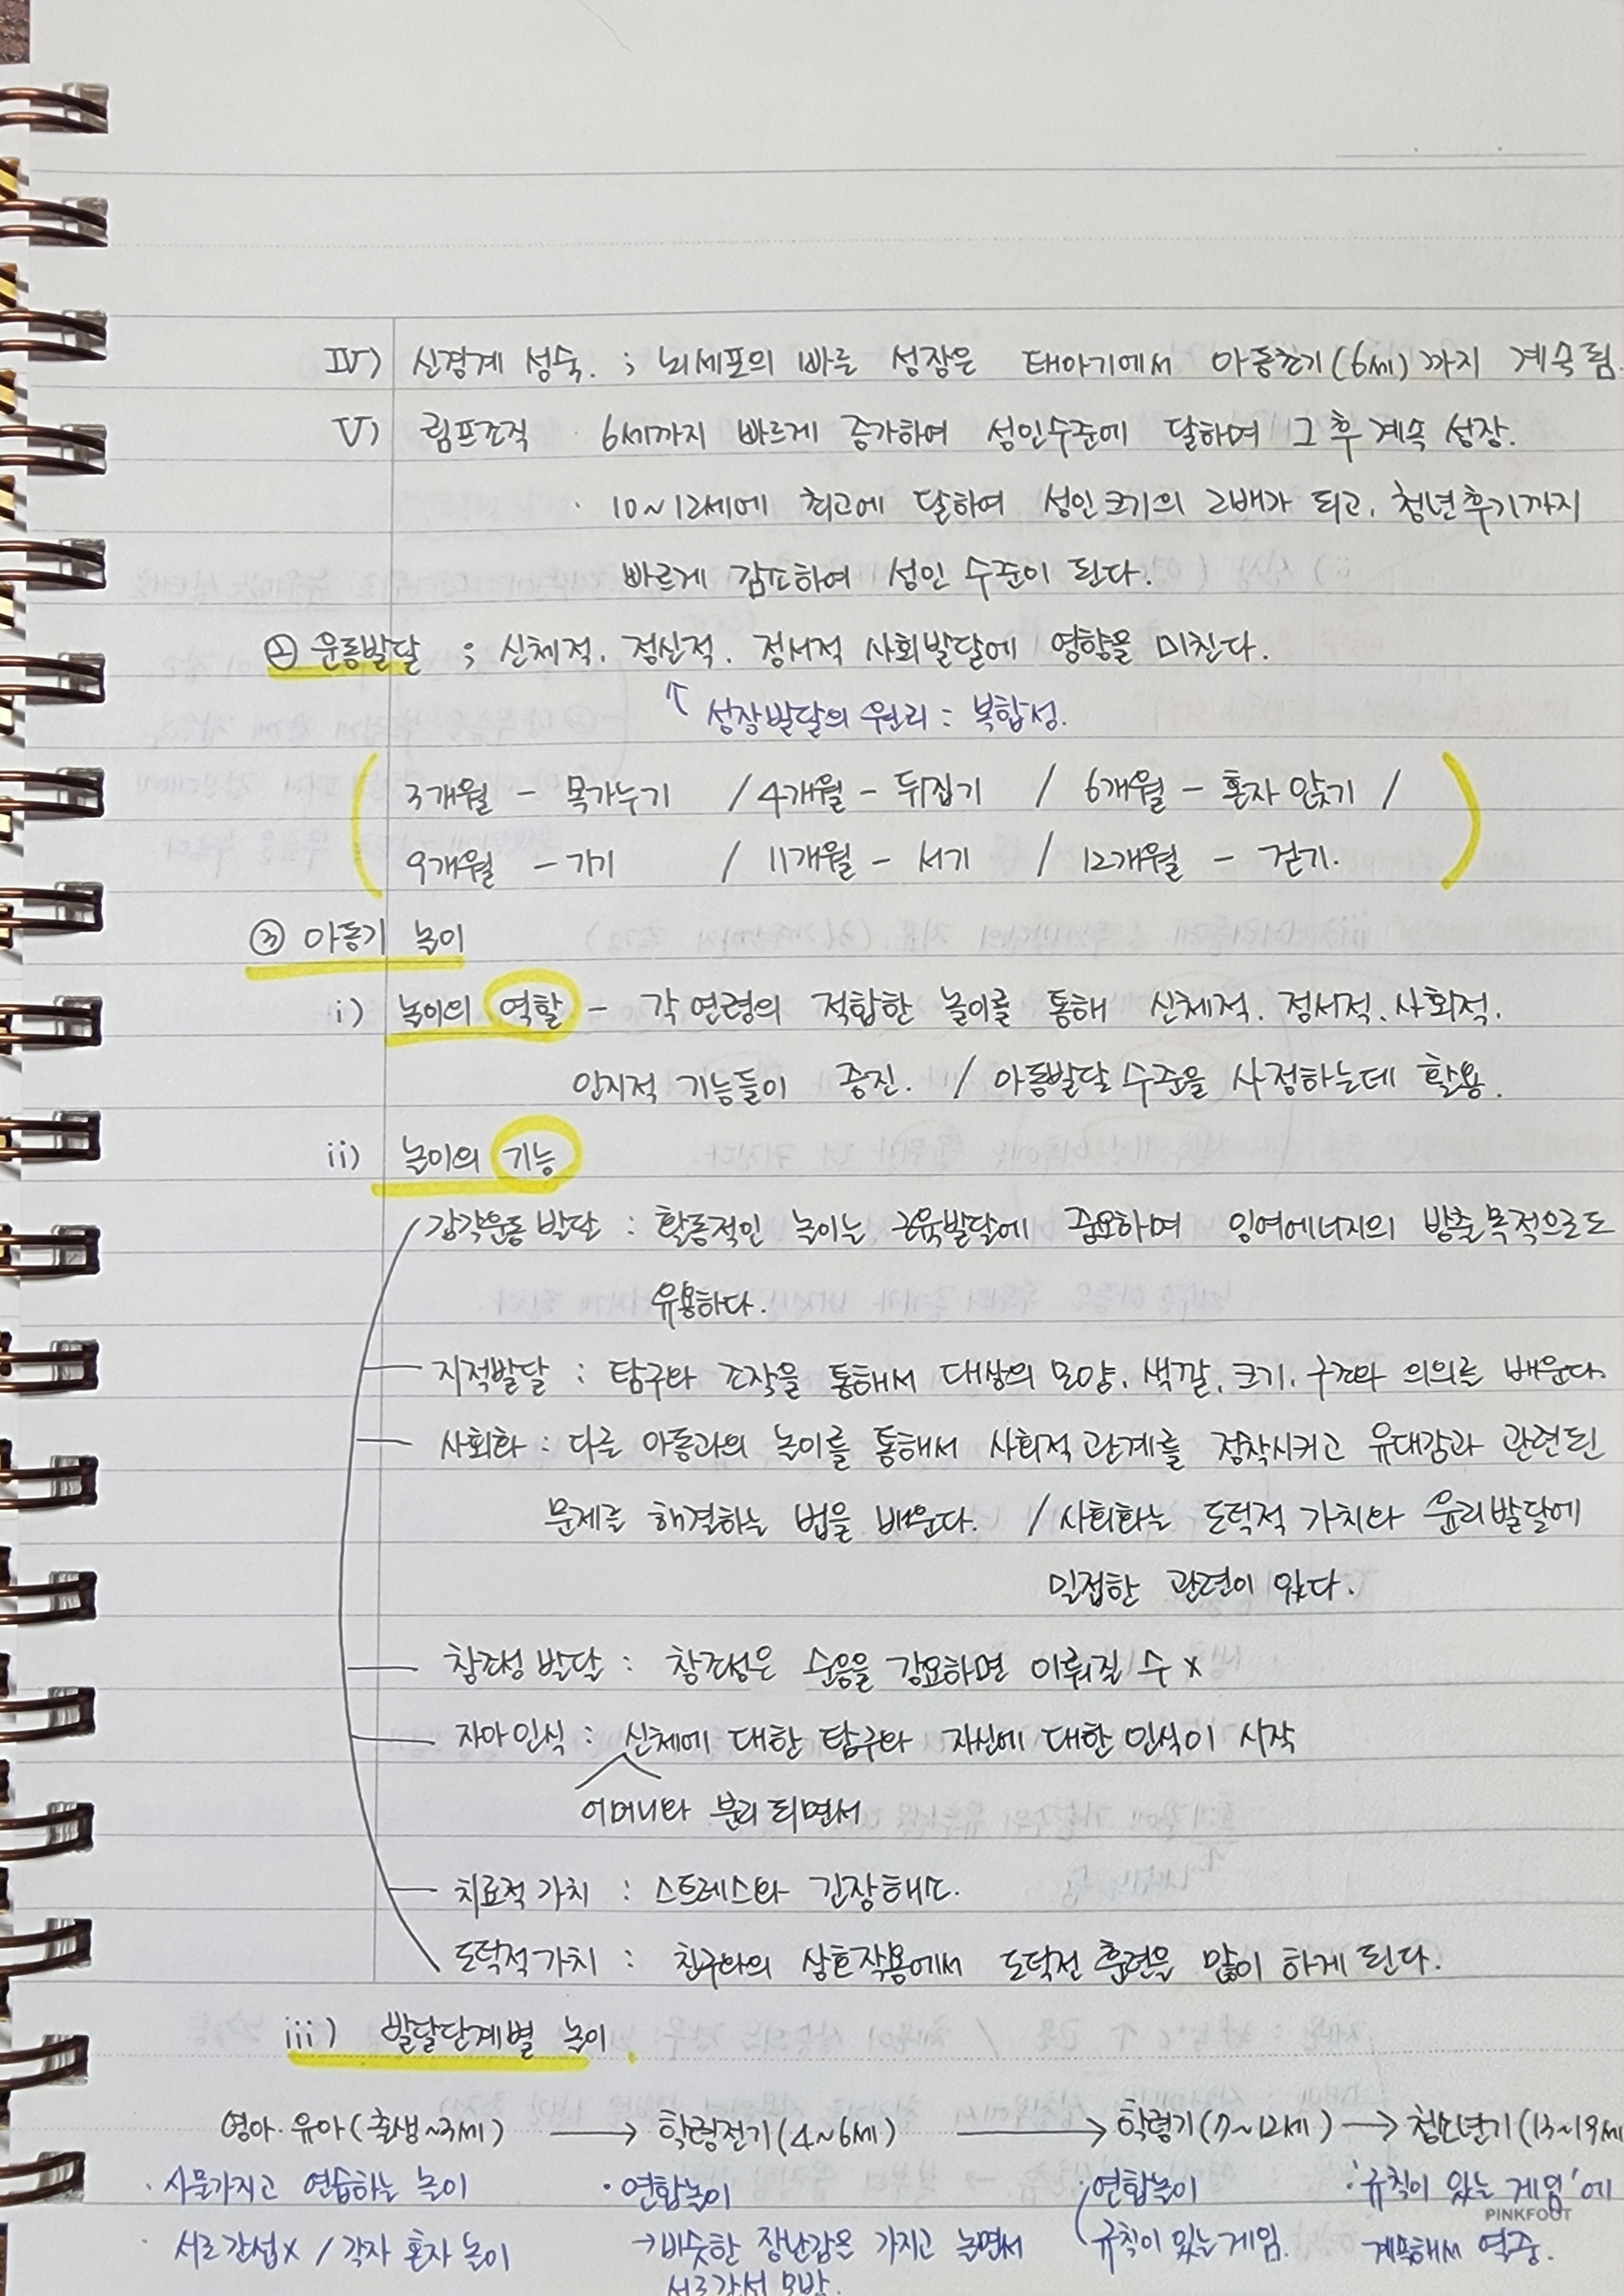 IV) 신경계 성숙. ; 뇌세포의 빠른 성장은 태아기에서 아동초기(6세)까지 계속됨.
V) 림프조직 · 6세까지 빠르게 증가하여 성인수준에 달하며 그 후 계속 성장.
· 10~12세에 최고에 달하여 성인크기의 2배가 되고, 청년후기까지
빠르게 감소하여 성인 수준이 된다.
② 운동발달 ; 신체적. 정신적. 정서적 사회발달에 영향을 미친다.
↑ 성장발달의 원리 : 복합성.
3개월 - 목가누기 / 4개월 - 뒤집기 / 6개월 - 혼자 앉기 /
9개월 - 기기 / 11개월 - 서기 / 12개월 - 걷기.
③ 아동기 놀이
i) 놀이의 역할 - 각 연령의 적합한 놀이를 통해 신체적. 정서적. 사회적.
인지적 기능들이 증진. / 아동발달 수준을 사정하는데 활용.
ii) 놀이의 기능
감각운동 발달 : 활동적인 놀이는 근육발달에 중요하며 잉여에너지의 방출목적으로도
유용하다.
지적발달 : 탐구와 조작을 통해서 대상의 모양. 색깔. 크기. 구조와 의의를 배운다.
사회화 : 다른 아동과의 놀이를 통해서 사회적 관계를 정착시키고 유대감과 관련된
문제를 해결하는 법을 배운다. / 사회화는 도덕적 가치와 윤리발달에
밀접한 관련이 있다.
창조성 발달 : 창조성은 순응을 강요하면 이뤄질 수 x
자아인식 : 신체에 대한 탐구와 자신에 대한 인식이 시작
어머니와 분리 되면서
치료적 가치 : 스트레스와 긴장해소.
도덕적가치 : 친구와의 상호작용에서 도덕적 훈련을 많이 하게 된다.
iii) 발달단계별 놀이.
영아·유아(출생~3세) → 학령전기(4~6세) → 학령기(7~12세) → 청소년기(13~19세
· 사물가지고 연습하는 놀이 · 연합놀이 연합놀이 · '규칙이 있는 게임'에
PINKFOOT
서로간섭x / 각자 혼자 놀이 → 비슷한 장난감은 가지고 놀면서 규칙이 있는 게임. 계속해서 열중.
서로간섭 모방.